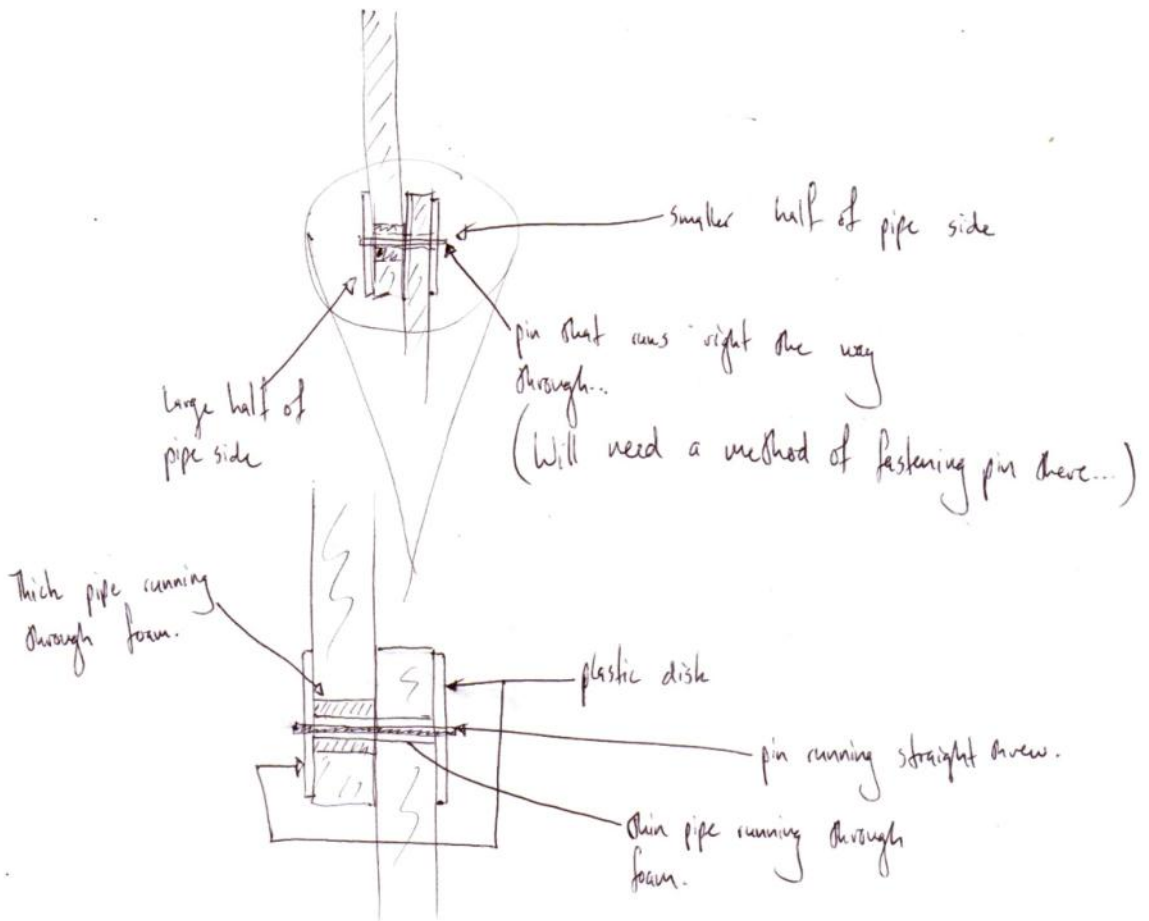 smaller half of pipe side
pin that runs right the way
through...
(Will need a method of fastening pin there...)
Large half of
pipe side
Thick pipe running
through foam.
plastic disk
pin running straight threw.
thin pipe running through
foam.